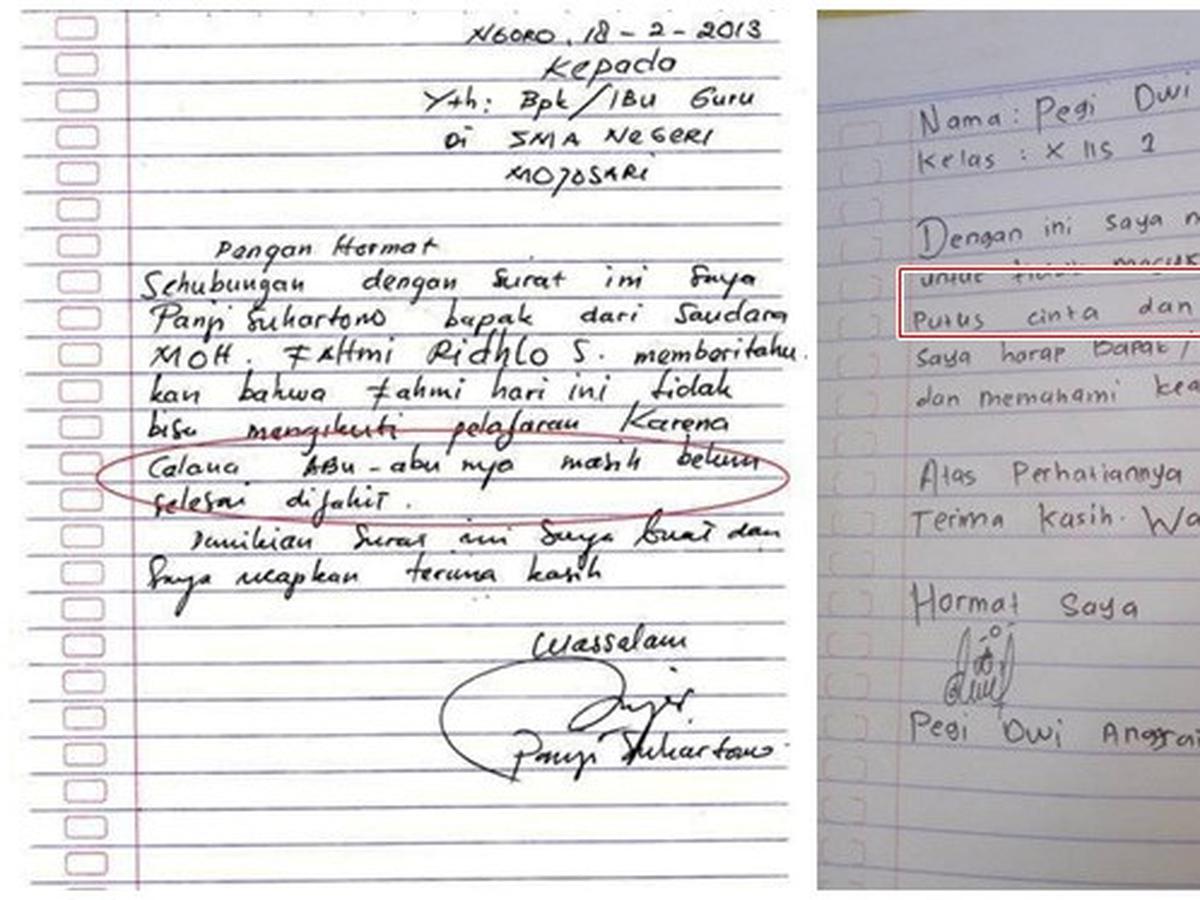 NGORO, 18 - 2 - 2013
Kepada
Yth: Bpk/IBu Guru
Di SMA NEGERI
MOJOSARI
Dengan Hormat
Sehubungan dengan surat ini Saya
Panji Suhartono bapak dari Saudara
MOH. FAHmi Ridhlo S. memberitahu
kan bahwa Fahmi hari ini tidak
bisa mengikuti pelajaran Karena
Calana ABu-abu nya masih belum
selesai dijahit.
Demikian Surat ini Saya buat dan
Saya ucapkan terima kasih
Wassalam
Panji Suhartono
Nama : Pegi Dwi
Kelas : X IIS 1
Dengan ini saya
untuk tidak masuk
Putus cinta dan
Saya harap Bapak/
dan memahami
Atas Perhatiannya
Terima kasih.
Hormat Saya
Pegi Dwi